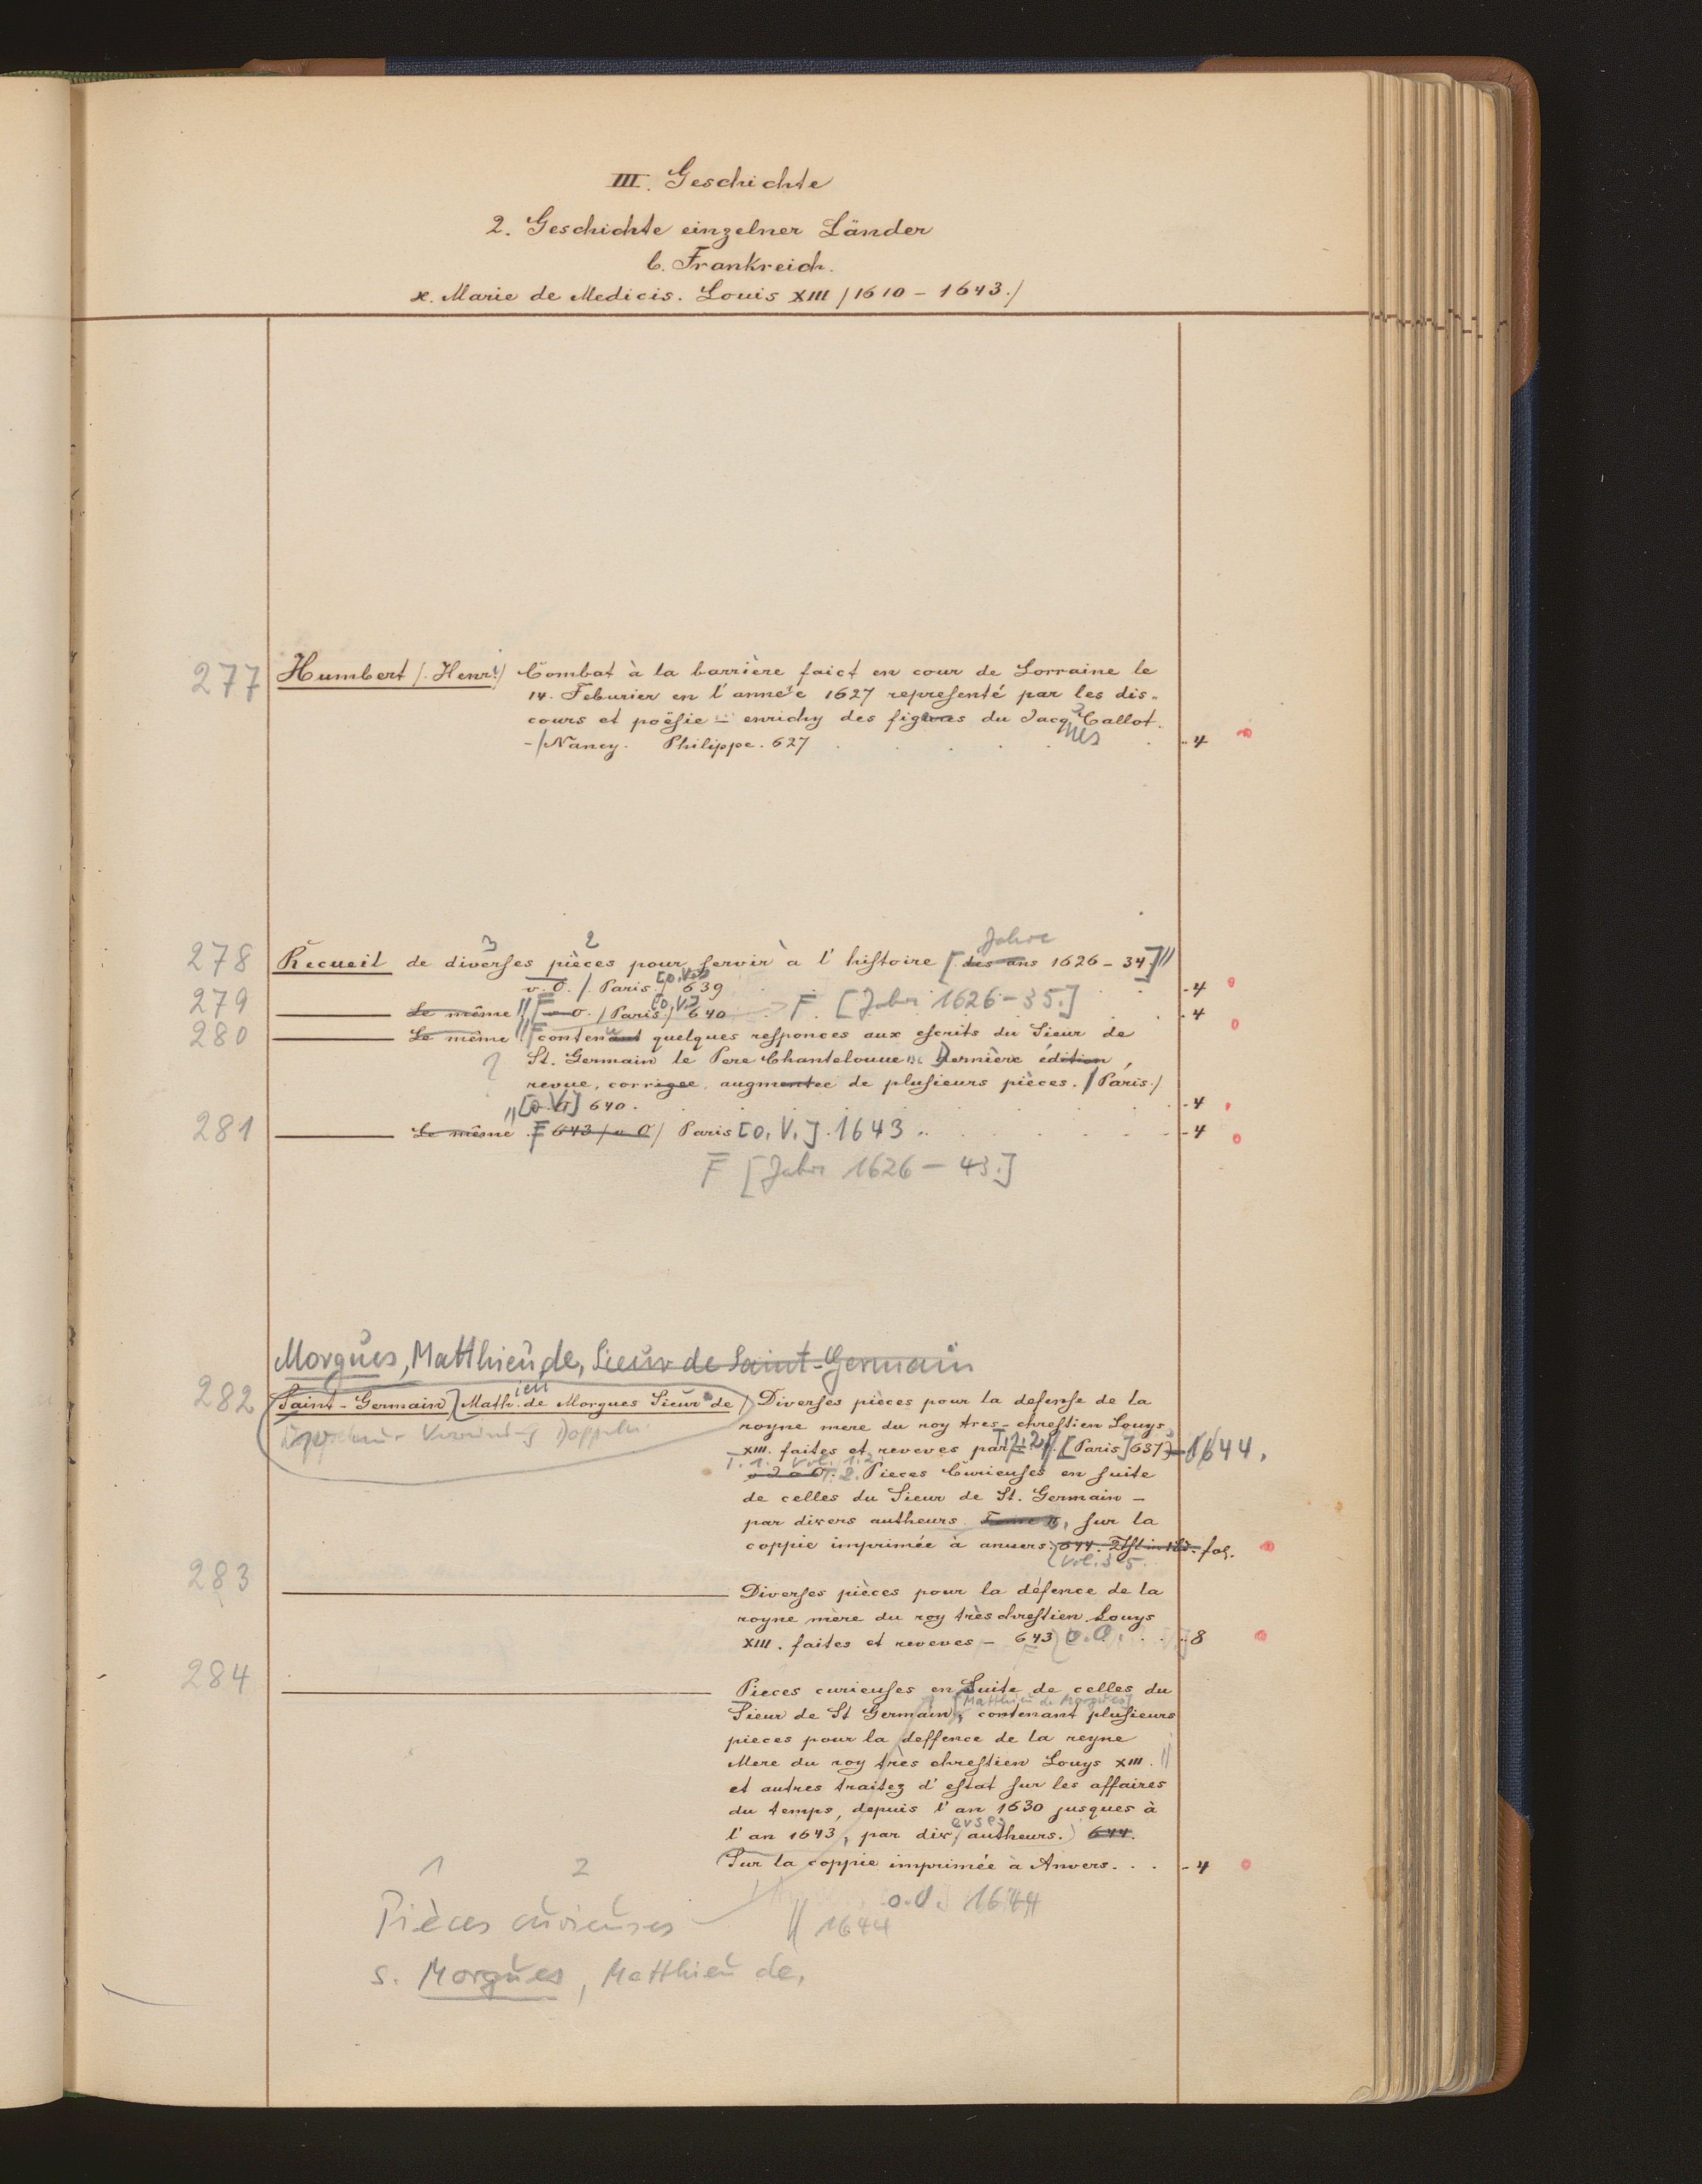 III. Geschichte
2. Geschichte einzelner Länder
b. Frankreich.
x. Marie de Medicis. Louis XIII /1610 - 1643./
277 Humbert /. Henri./ Combat à la barrière faict en cour de Lorraine le
14. Feburier en l'année 1627 representé par les dis-
cours et poësie - enrichy des figures du Jacques Callot.
-/Nancy. Philippe. 627 -4
Jahre
3 2
278 Recueil de diverses pièces pour servir à l'histoire [des ans 1626 - 34.]//
v. O. /. Paris./ [o. V.] 639 -4
279 Le même // F - O. / Paris./ [o. V.] 640 F. [Jahr 1626-35.] -4
280 Le même // F contenant quelques responces aux escrits du Sieur de
? St. Germain le Pere Chantelouue Dernière édition,
revue, corrigee, augmentee de plusieurs pièces. / Paris./
// [o. V.] 640. -4
281 Le même F 643 / o O / Paris [o. V.] 1643 -4
F [Jahr 1626 - 43.]
Morgues, Matthieu de, Sieur de Saint-Germain
282 (Saint-Germain) Mathieu de Morgues Sieur de / Diverses pièces pour la defense de la
royne mere du roy tres-chrestien Louys
XIII. faites et reveves par T. 1. 2. // [Paris] 637 - 1644.
T. 1. Vol. 1.2.
T. 2. Pieces Curieuses en suite
de celles du Sieur de St. Germain -
par divers autheurs Tome II, sur la
coppie imprimée à anuers. 644. fol.
Vol. 3-5.
283 Diverses pièces pour la défence de la
royne mère du roy très chrestien Louys
XIII. faites et reveves - 643 o. O. -8
284 Pieces curieuses en Suite de celles du
[Matthieu de Morgues]
Sieur de St Germain, contenant plusieurs
pieces pour la deffence de la reyne
Mere du roy très chrestien Louys XIII. //
et autres traitez d'estat sur les affaires
du temps, depuis l'an 1630 jusques à
l'an 1643, par diverses autheurs. 644.
Sur la coppie imprimée à Anvers. -4
1 2
o. O. 1644
Pièces curieuses // 1644
s. Morgues, Matthieu de,